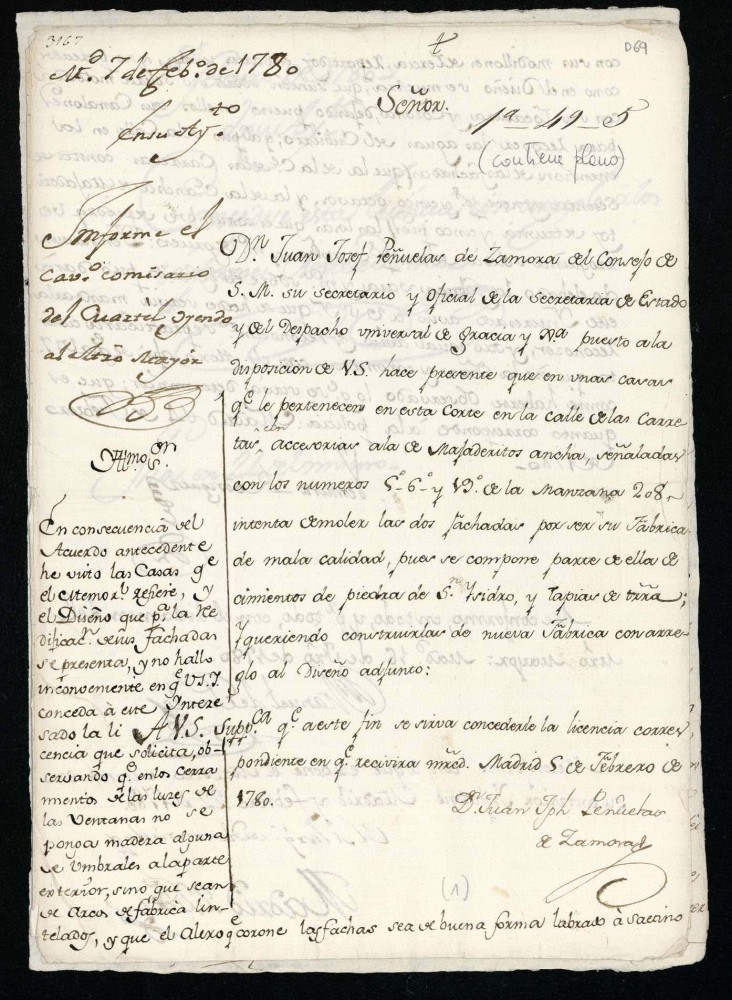 3167
D69
M.d 7 de Feb.o de 1780
En su Ay.to
Señor.
1a-49-5
(contiene plano)
Informe el
Cav.o comisario
del Quartel oyendo
al Mro Mayor
D.n Juan Josef Peñuelas de Zamora del Consejo de
S. M. su secretario y Oficial de la Secretaria de Estado
y del Despacho vniversal de Gracia y Jª puesto a la
disposicion de V.S. hace presente que en vnas casas
q.e le pertenecen en esta Corte en la calle de las Carre
tas, con accesorias a la de Majaderitos ancha, señaladas
con los numeros 5.o 6.o y 19.o de la Manzana 208,
intenta demoler las dos fachadas por ser su Fabrica
de mala calidad, pues se compone parte de ella de
cimientos de piedra de S.n Ysidro, y tapias de trra;
y queriendo construirlas de nueva Fabrica con arre
glo al Diseño adjunto:
A V.S. Supp.ca q.e a este fin se sirva concederle la licencia corres
pondiente en q.e recivira mrcd. Madrid 5 de Febrero de
1780.
D.n Juan Jph Peñuelas
de Zamora
(1)
Yllmo S.or
En consecuencia del
Acuerdo antecedente
he visto las Casas q.e
el Memor.l refiere, y
el Diseño que p.a la Ree
dificac.n de sus Fachadas
se presenta, y no hallo
inconveniente en q.e V.S.Y.
conceda à este Yntere
sado la li
cencia que solicita, ob-
servando q.e en los cerra
mientos de las luzes de
las Ventanas no se
ponga madera alguna
de Vmbrales a la parte
exterior, sino que sean
de Arcos de fábrica lin-
telados, y que el Alero q.e corone las fachas sea de buena forma labrado à Saetino